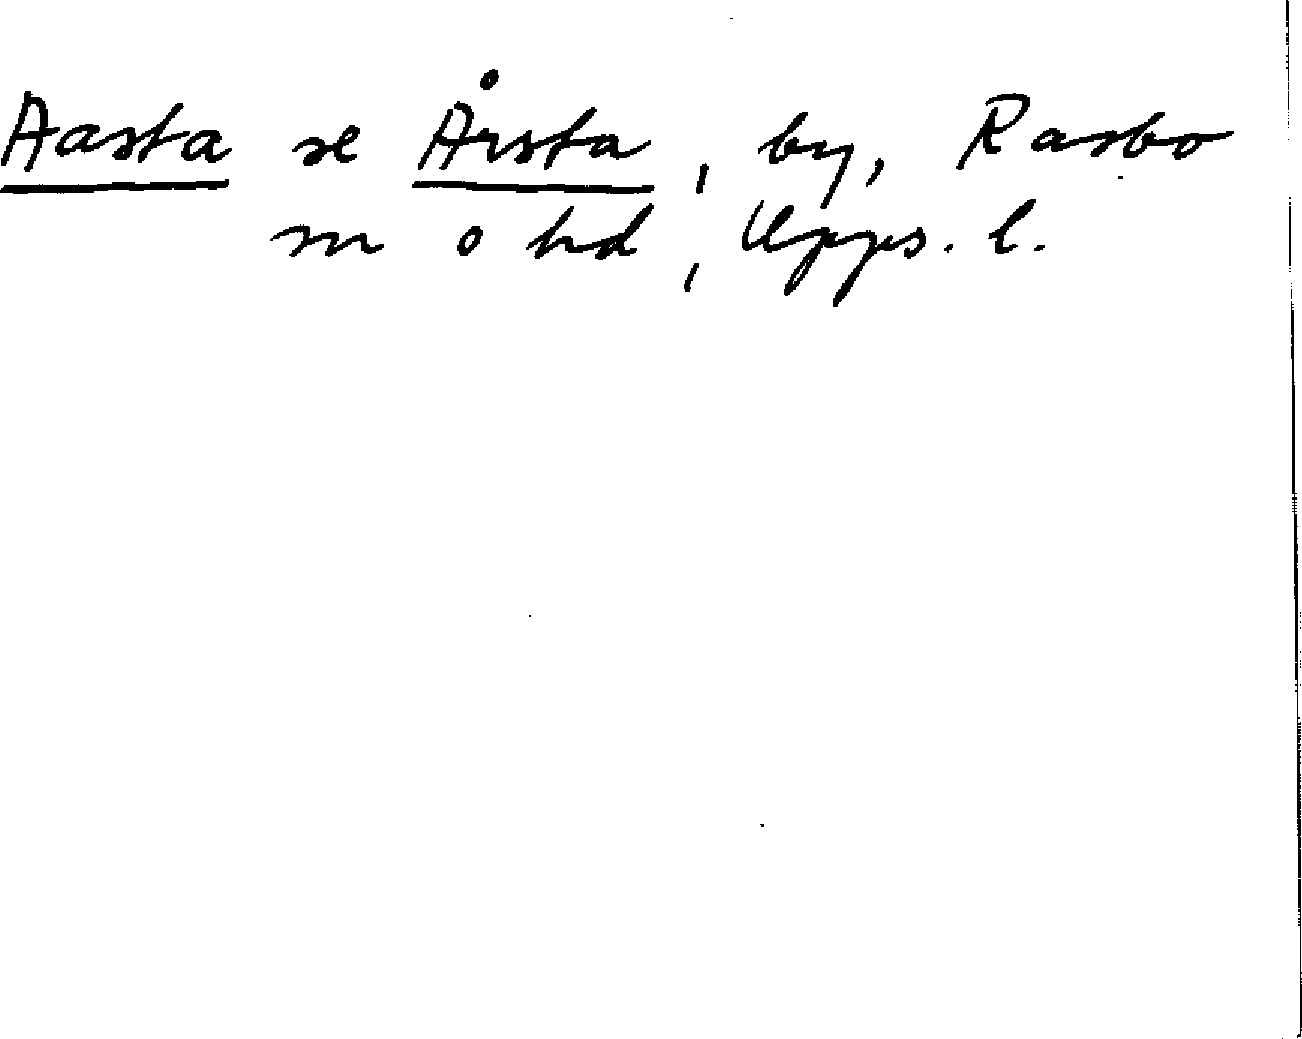 Aasta se Årsta, by, Rasbo
sn o hd, Upps. l.